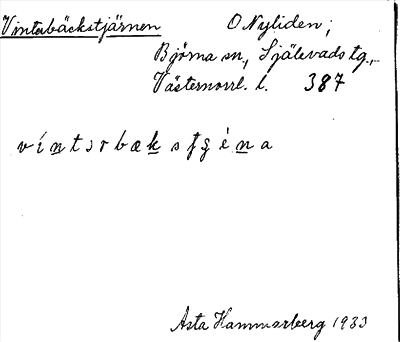 Vinterbäckstjärnen O Nyliden;
Björna sn, Själevads tg.,
Västernorrl. l. 387
Asta Hammarberg 1933